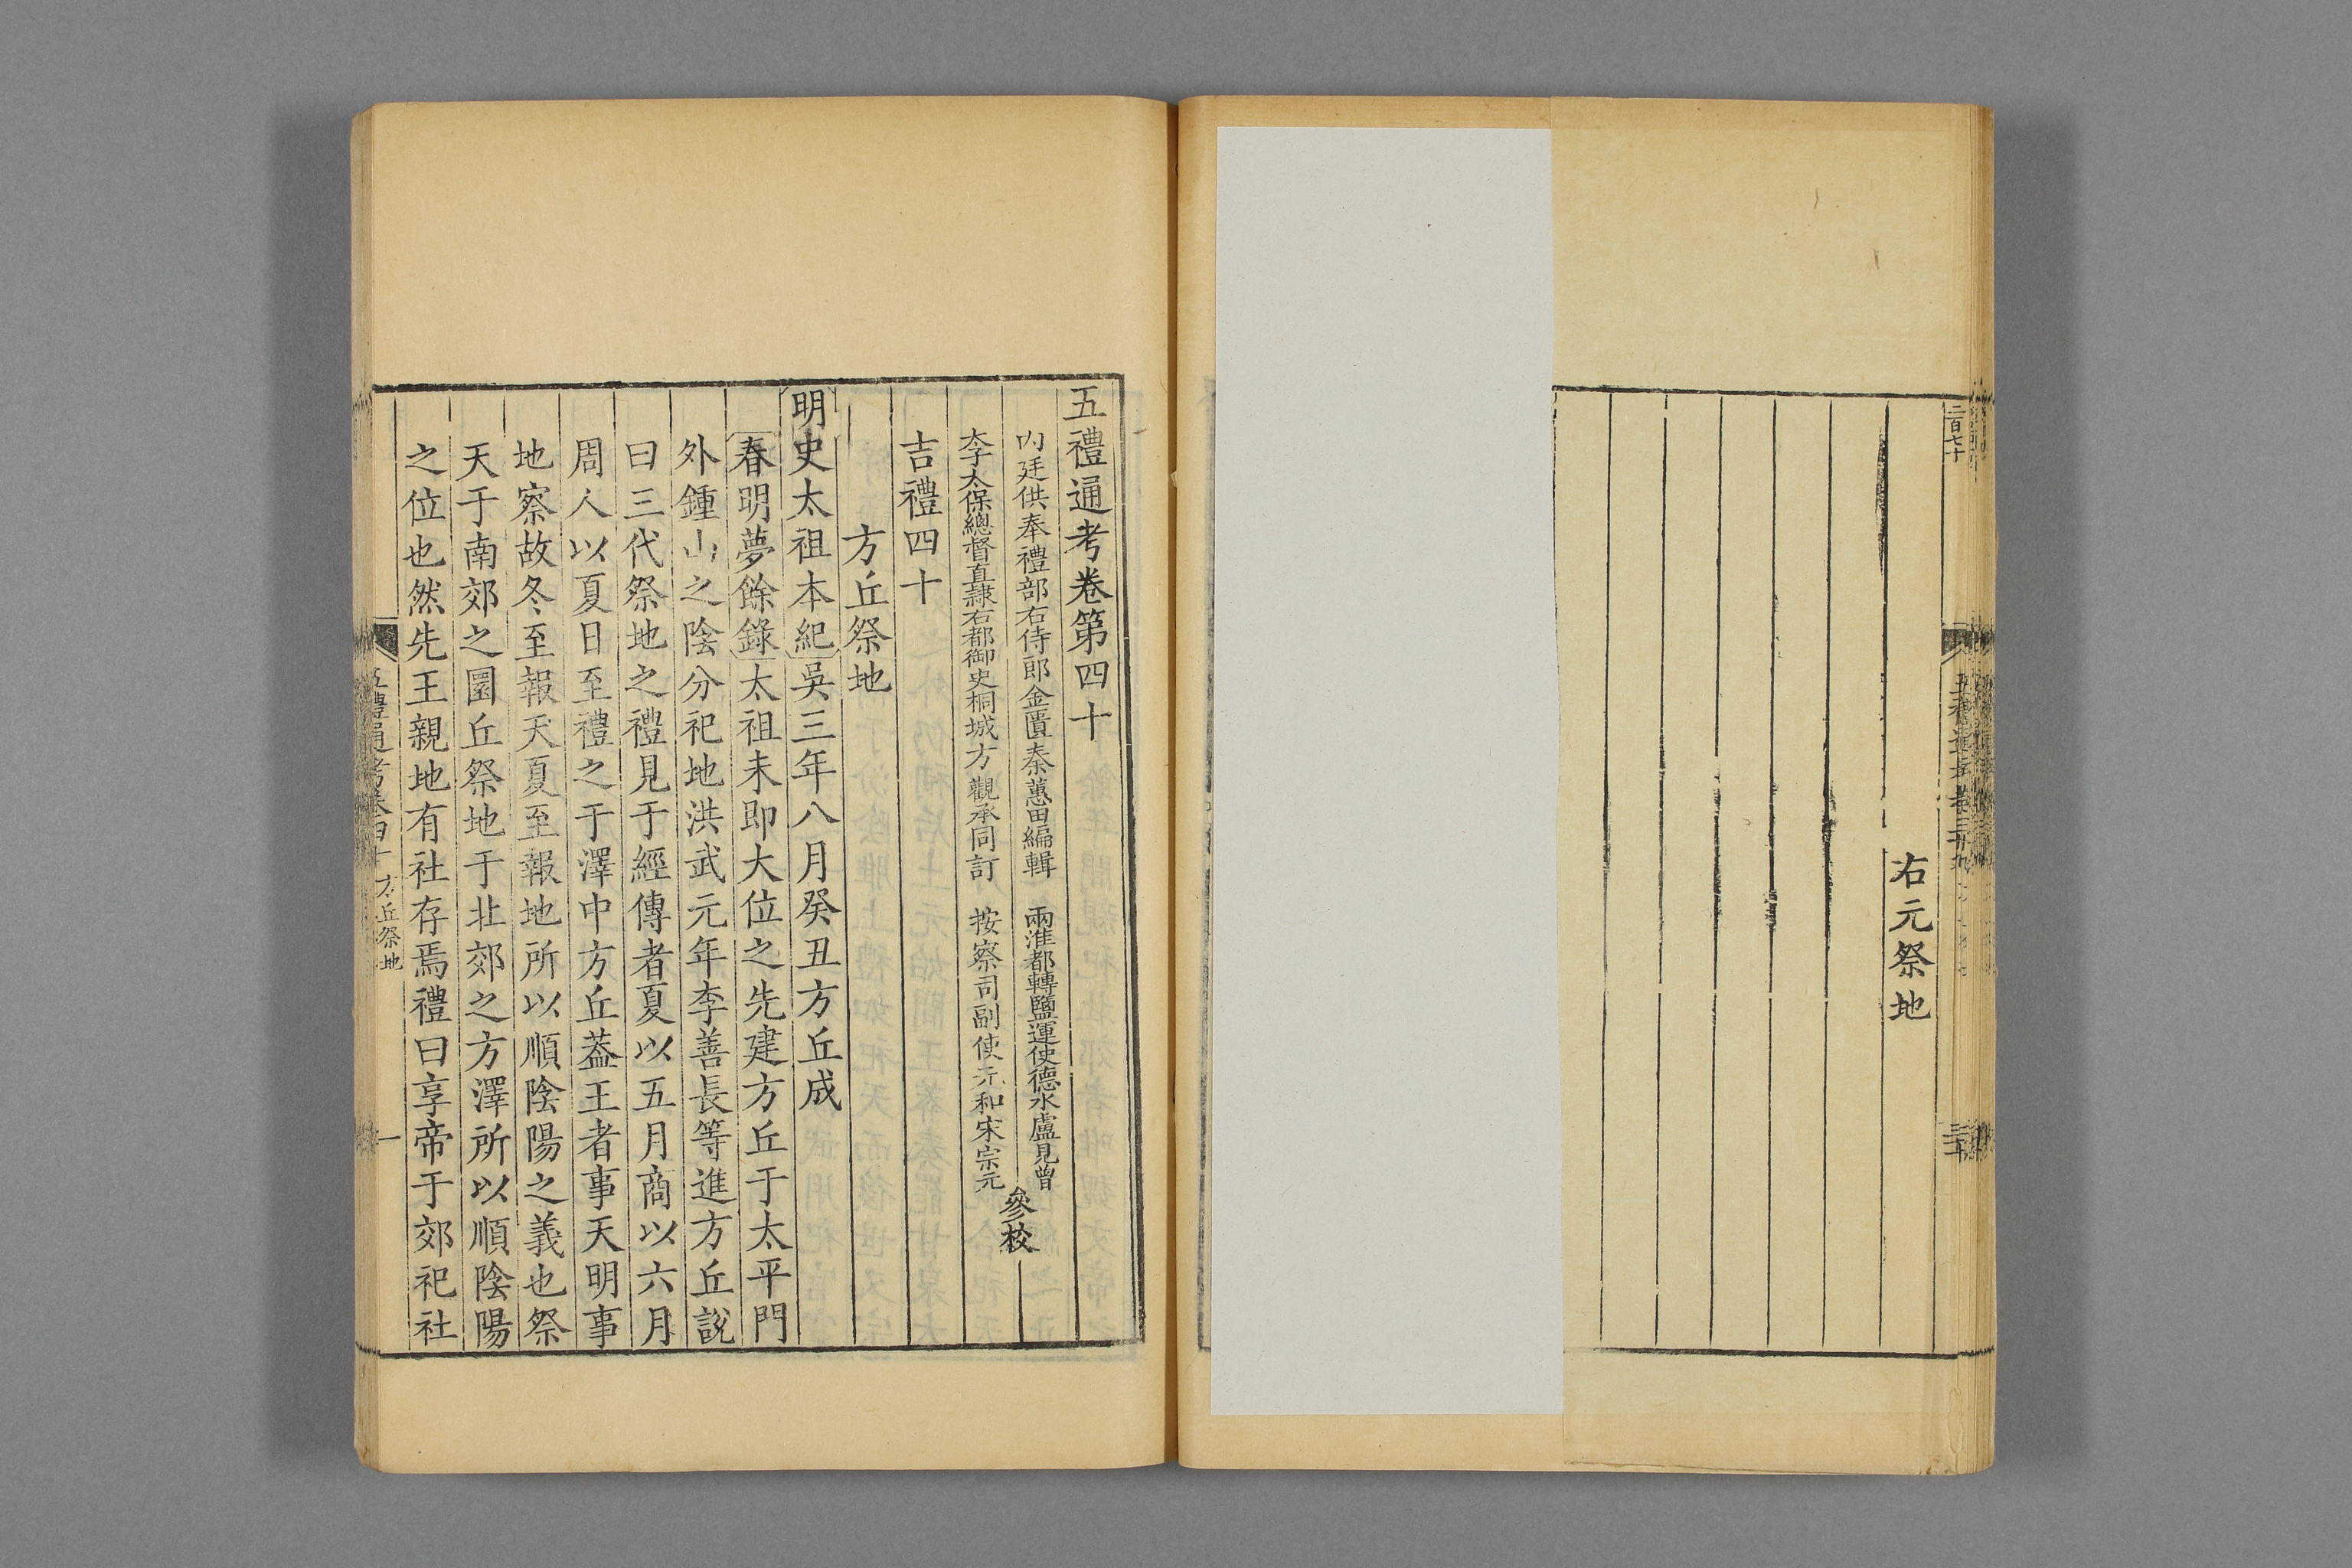 二百七十
右元祭地
五禮通考卷第四十
内廷供奉禮部右侍郎金匱秦蕙田編輯
兩淮都轉鹽運使德水盧見曾
李太保總督直隸右都御史桐城方觀承同訂
按察司副使元和宋宗元
參校
吉禮四十
方丘祭地
明史太祖本紀吳三年八月癸丑方丘成
春明夢餘錄太祖未即大位之先建方丘于太平門
外鍾山之陰分祀地洪武元年李善長等進方丘說
曰三代祭地之禮見于經傳者夏以五月商以六月
周人以夏日至禮之于澤中方丘蓋王者事天明事
地察故冬至報天夏至報地所以順陰陽之義也祭
天于南郊之圜丘祭地于北郊之方澤所以順陰陽
之位也然先王親地有社存焉禮曰享帝于郊祀社
五禮通考卷四十 方丘祭地 一